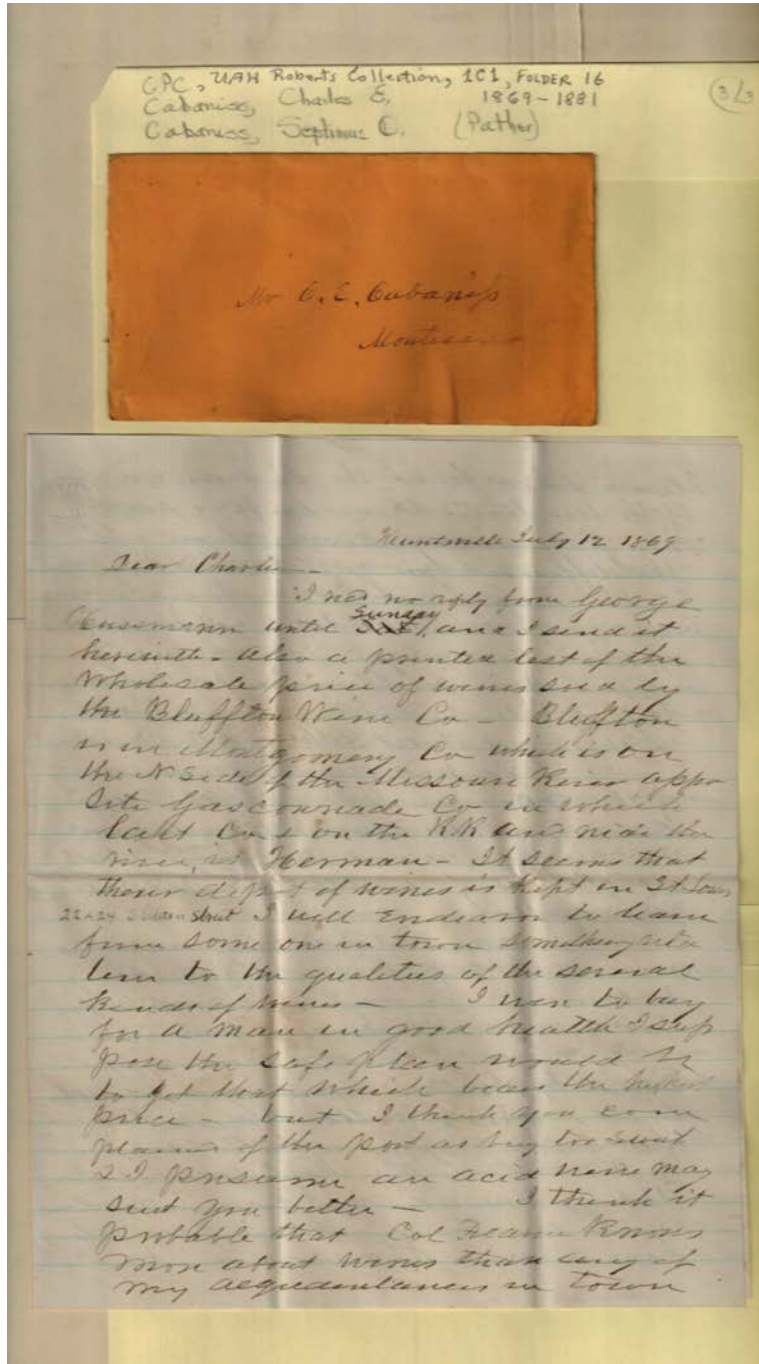 GPC, UAH Roberts Collection, 1C1, FOLDER 16
Cabaniss, Charles E. 1869-1881
Cabaniss, Septimus D. (Father)
3/3
Mr C. E. Cabaniss
Montesano
Huntsville July 12 1869
Dear Charles
I had no reply from George
Hussmann until Sunday, and I send it
herewith - also a printed list of the
wholesale price of wines sold by
the Bluffton Wine Co - Bluffton
is in Montgomery Co which is on
the N Side of the Missouri River oppo
site Gasconnade Co in which
last Co & on the RR and near the
river, is Herman - It seems that
their depot of wines is kept in St Louis
22 & 24 Street I will Endeavor to learn
from some one in town something in rela
tion to the qualities of the several
kinds of wines - to buy
for a man in good health I sup
pose the safe plan would be
to get that which bears the highest
price - but I think you com
plained of the Port as being too sweet
& I presume an acid wine may
suit you better - I think it
probable that Col Knows
more about wines than any of
my acquaintances in town